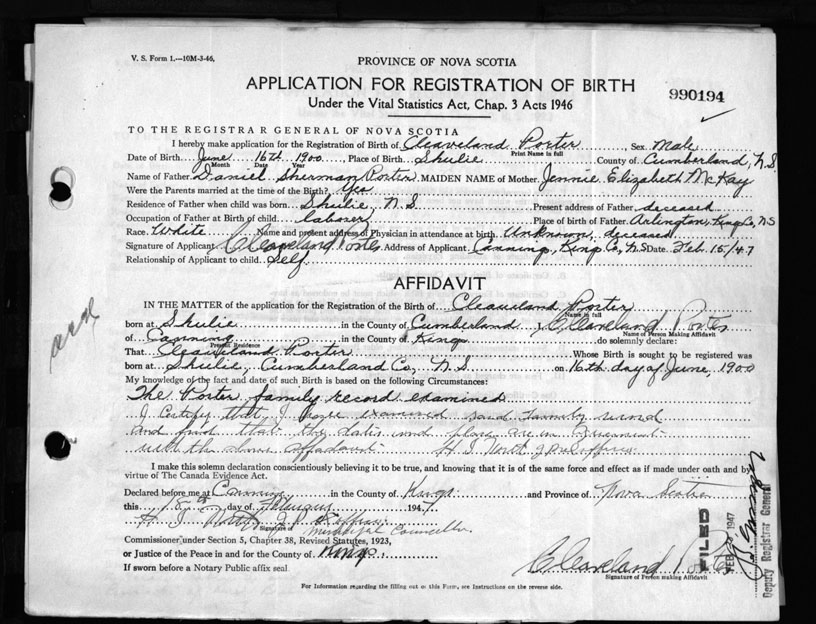 V. S. Form 1.—10M-3-46.
PROVINCE OF NOVA SCOTIA
APPLICATION FOR REGISTRATION OF BIRTH
Under the Vital Statistics Act, Chap. 3 Acts 1946
990194
TO THE REGISTRAR GENERAL OF NOVA SCOTIA
I hereby make application for the Registration of Birth of Cleaveland Porter Sex Male
Print Name in full
Date of Birth June 16th 1900, Place of Birth Shulie County of Cumberland, N.S.
Month Date Year
Name of Father Daniel Sherman Porter MAIDEN NAME of Mother Jennie Elizabeth McKay
Were the Parents married at the time of the Birth? Yes
Residence of Father when child was born Shulie, N.S. Present address of Father deceased
Occupation of Father at Birth of child laborer Place of birth of Father Arlington, Kings Co, N.S
Race White Name and present address of Physician in attendance at birth Unknown, deceased
Signature of Applicant Cleaveland Porter Address of Applicant Canning, Kings Co, N.S Date Feb. 15/47
Relationship of Applicant to child Self
AFFIDAVIT
IN THE MATTER of the application for the Registration of the Birth of Cleaveland Porter
Name in full
born at Shulie in the County of Cumberland, Cleaveland Porter
Name of Person Making Affidavit
of Canning in the County of Kings do solemnly declare:
Present Residence
That Cleaveland Porter Whose Birth is sought to be registered was
born at Shulie, Cumberland Co, N.S on 16th day of June, 1900
My knowledge of the fact and date of such Birth is based on the following Circumstances:
The Porter family record examined
I certify that I have examined said family record
and find that the dates and place are in agreement
with the above affidavit. H. I. North
I make this solemn declaration conscientiously believing it to be true, and knowing that it is of the same force and effect as if made under oath and by
virtue of The Canada Evidence Act.
Declared before me at Canning in the County of Kings and Province of Nova Scotia
this 18th day of February 1947
H. I. North
Signature of
Municipal Councillor
Commissioner under Section 5, Chapter 38, Revised Statutes, 1923,
or Justice of the Peace in and for the County of Kings
If sworn before a Notary Public affix seal
Cleaveland Porter
Signature of Person making Affidavit
For Information regarding the filling out of this Form, see Instructions on the reverse side.
FILED
1947
Deputy Registrar General